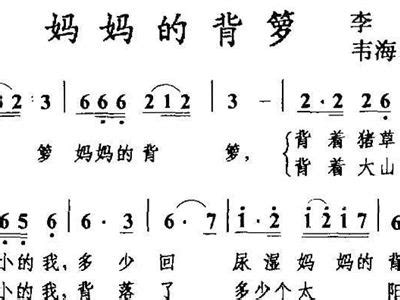 妈妈的背箩
李
韦海
32 3 | 666 212 | 3 - | 2·2 26
箩 妈妈的 背 箩, 背 着 猪草
背 着 大山
665 | 6·3 | 6·7 | i·2 i i 7
小的我,多 少 回 尿 湿 妈 妈的背
小的我,背 落 了 多少个太 阳